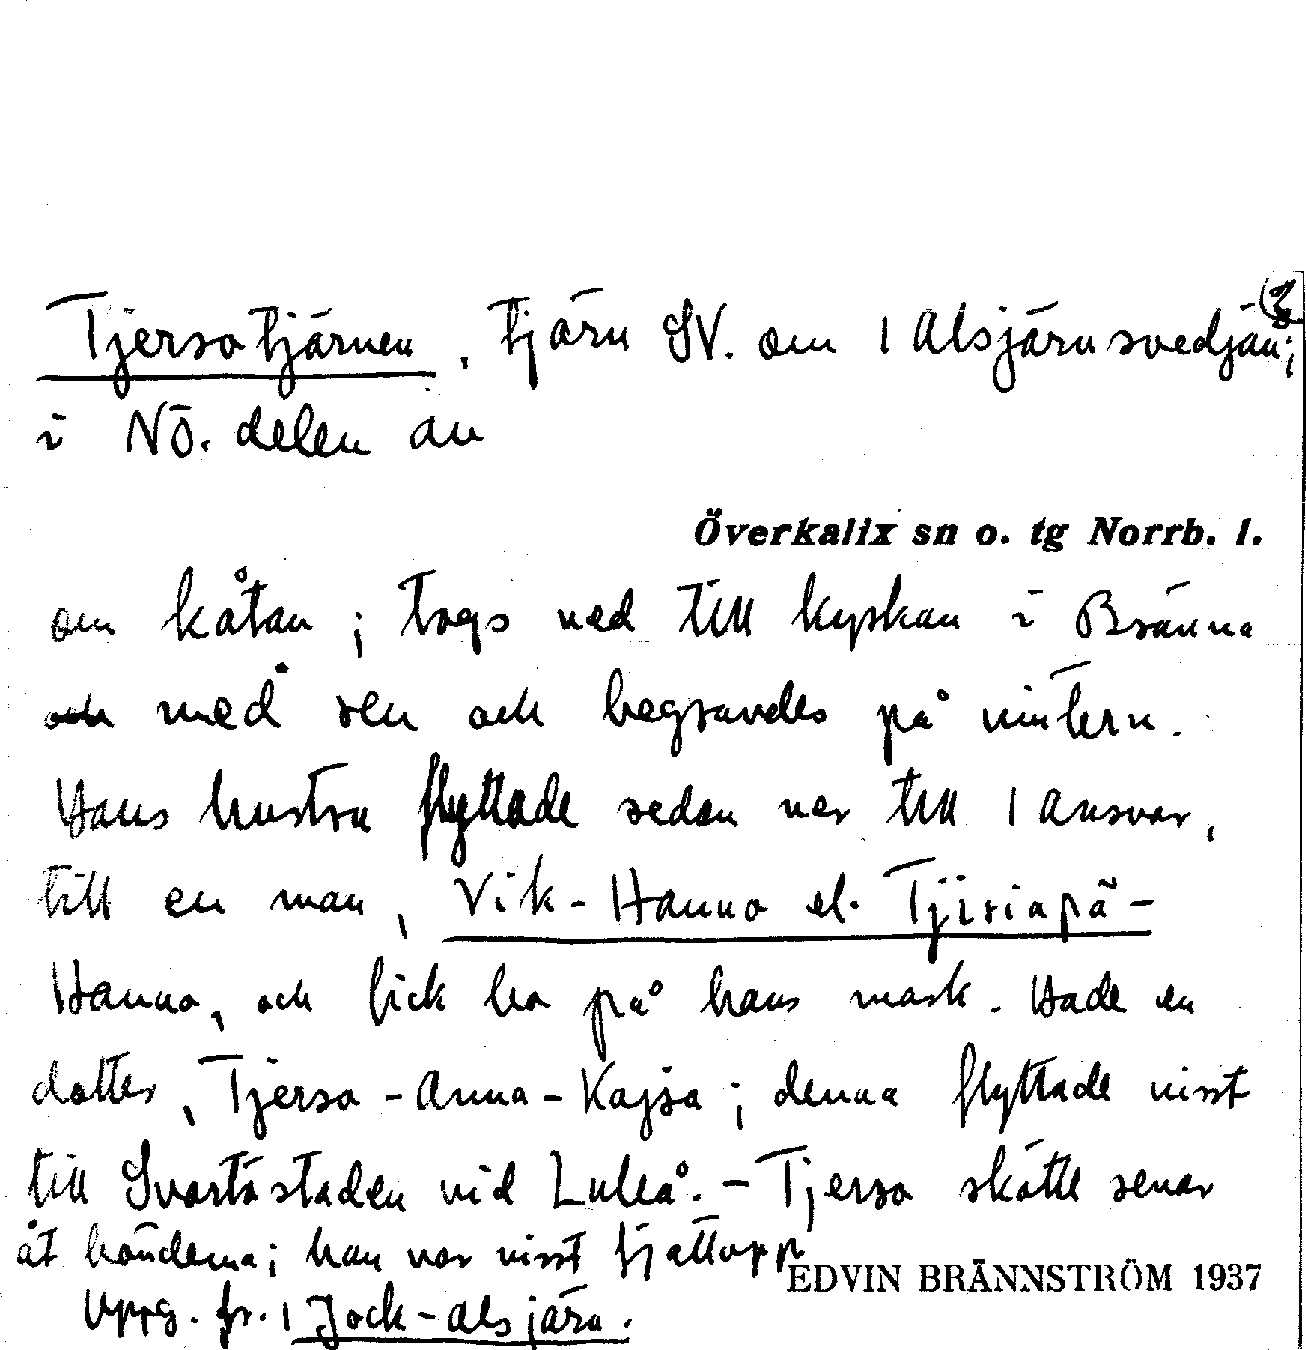 (3
Tjersotjärnen, tjärn SV. om 1 Alsjärnsvedjan;
i NÖ. delen av
Överkalix sn o. tg Norrb. l.
om kåtan; togs ned till kyrkan i Bränna
och med ren och begravdes på vintern.
Hans hustru flyttade sedan ner till 1 Ansvar,
till en man, Vik-Hanno el. Tjiriapä-
Hanno, och fick bo på hans mark. Hade en
dotter, Tjerso-Anna-Kajsa; denna flyttade visst
till Svartöstaden vid Luleå. - Tjerso skötte renar
åt bönderna; han var visst fjällapp
EDVIN BRÄNNSTRÖM 1937
Uppg. fr. 1 Jock-alsjärn.